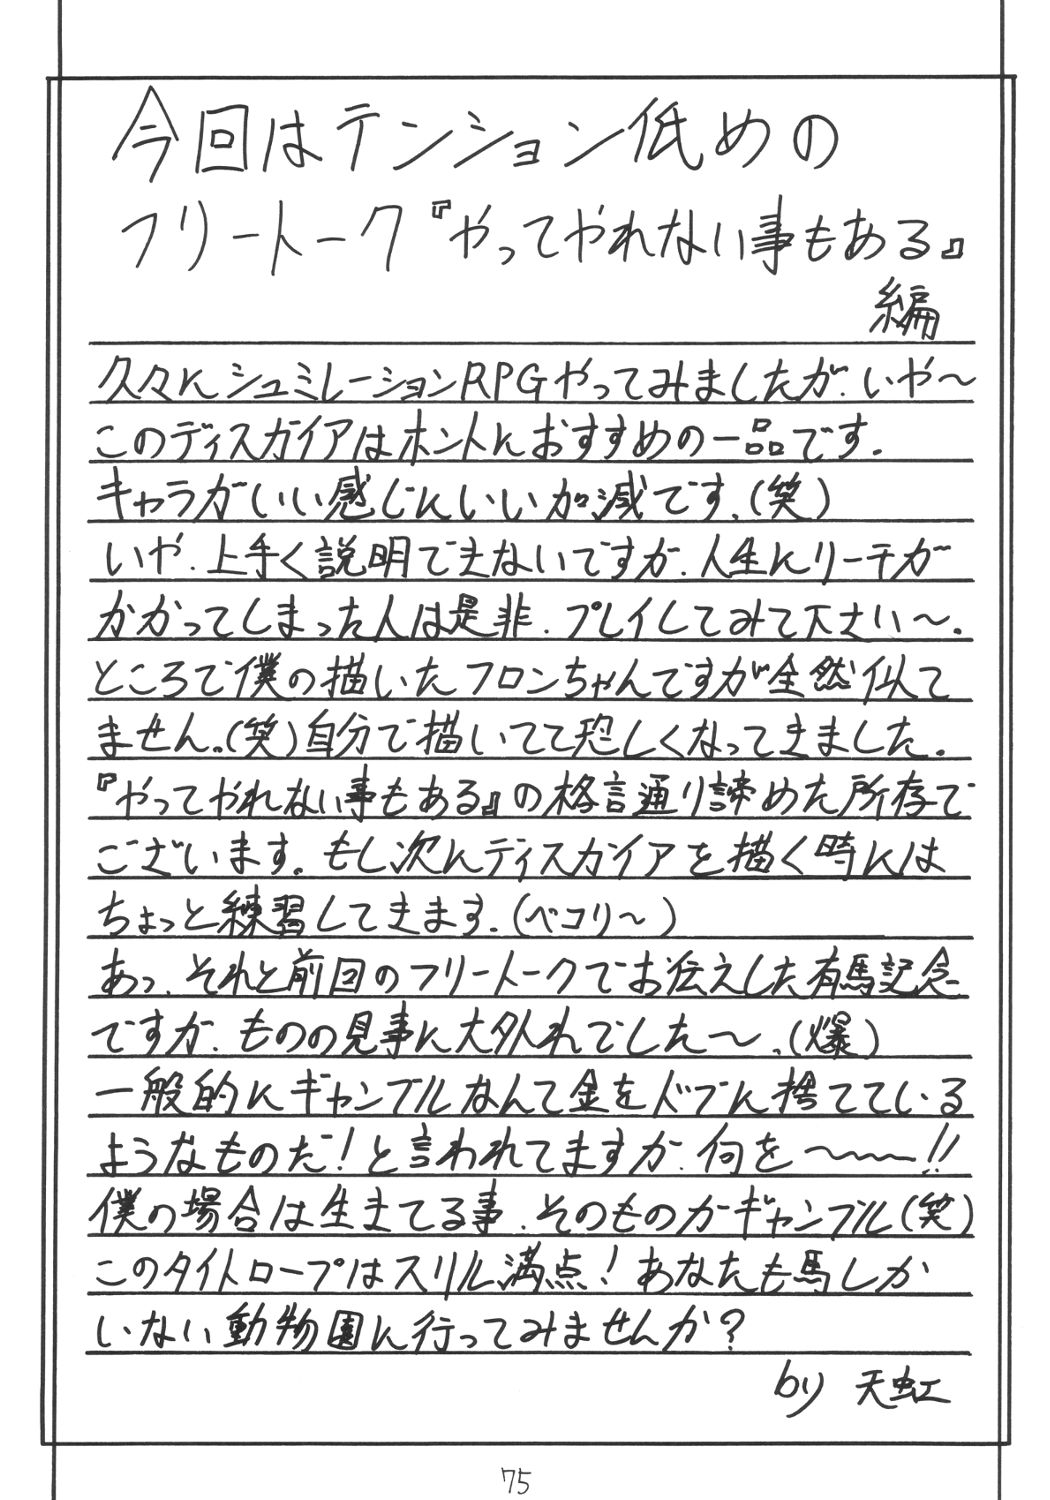 今回はテンション低めの
フリートーク『やってやれない事もある』
編
久々にシュミレーションRPGやってみましたが、いや～
このディスガイアはホントにおすすめの一品です。
キャラがいい感じにいい加減です。(笑)
いや、上手く説明できないですが、人生にリーチが
かかってしまった人は是非、プレイしてみて下さい～。
ところで僕の描いたフロンちゃんですが全然似て
ません。(笑)自分で描いてて恐しくなってきました。
『やってやれない事もある』の格言通り諦めた所存で
ございます。もし次にディスガイアを描く時には
ちょっと練習してきます。(ペコリ～)
あっ、それと前回のフリートークでお伝えした有馬記念
ですが、ものの見事に大外れでした～。(爆)
一般的にギャンブルなんて金をドブに捨てている
ようなものだ!と言われてますが、何を～～!!
僕の場合は生きてる事、そのものがギャンブル(笑)
このタイトロープはスリル満点!あなたも馬しか
いない動物園に行ってみませんか?
by 天虹
75